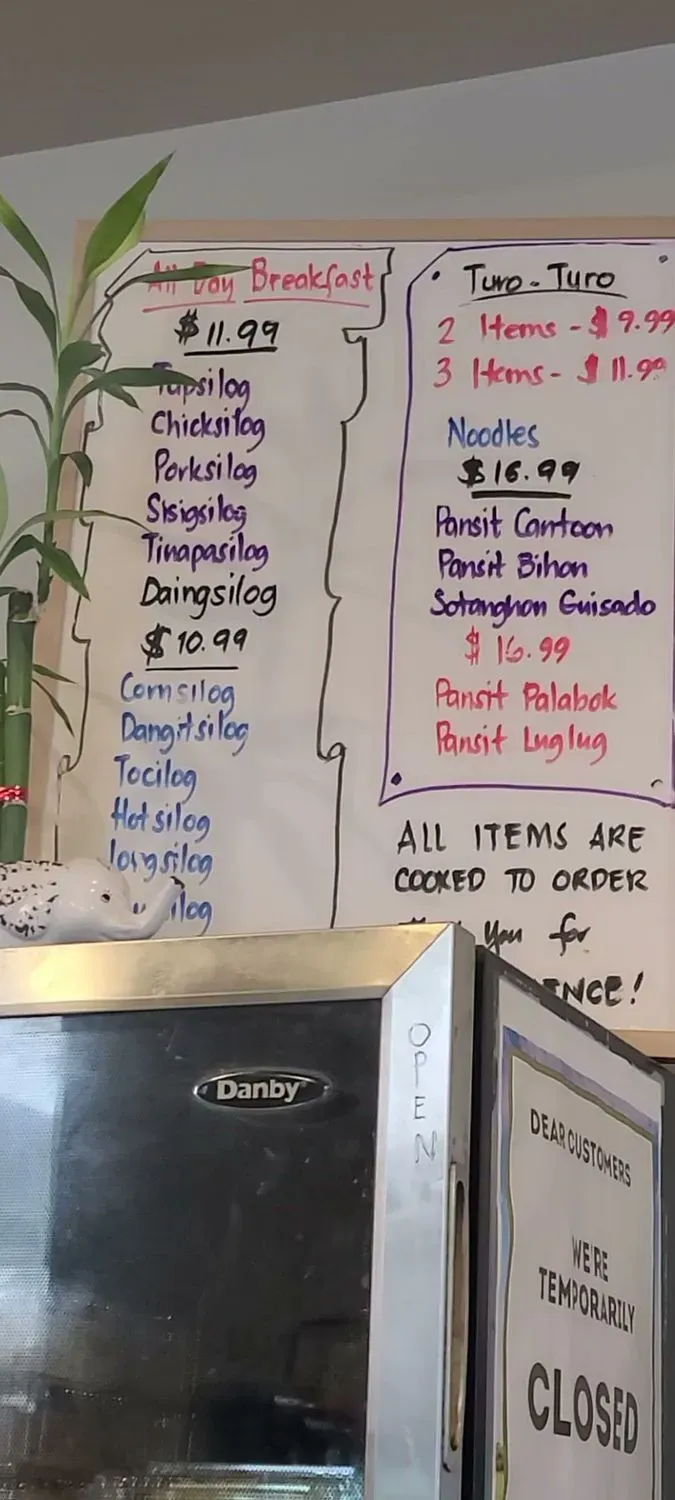 All Day Breakfast
$11.99
Tapsilog
Chicksilog
Porksilog
Sisigsilog
Tinapasilog
Daingsilog
$10.99
Cornsilog
Dangitsilog
Tocilog
Hotsilog
longsilog
Turo-Turo
2 Items - $9.99
3 Items - $11.99
Noodles
$16.99
Pansit Cantoon
Pansit Bihon
Sotanghon Guisado
$16.99
Pansit Palabok
Pansit Luglug
ALL ITEMS ARE
COOKED TO ORDER
you for
Danby
OPEN
DEAR CUSTOMERS
WE'RE
TEMPORARILY
CLOSED